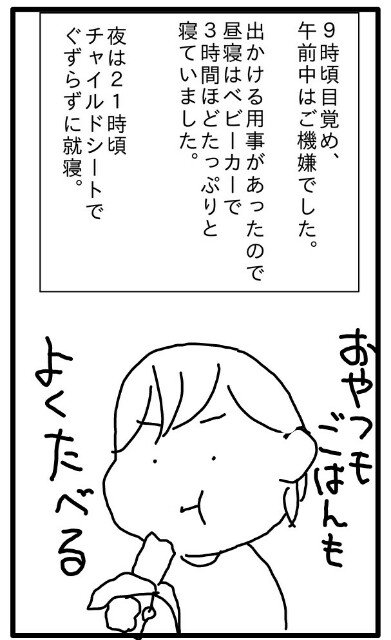 ９時頃目覚め、
午前中はご機嫌でした。
出かける用事があったので
昼寝はベビーカーで
３時間ほどたっぷりと
寝ていました。
夜は２１時頃
チャイルドシートで
ぐずらずに就寝。
おやつも
ごはんも
よくたべる